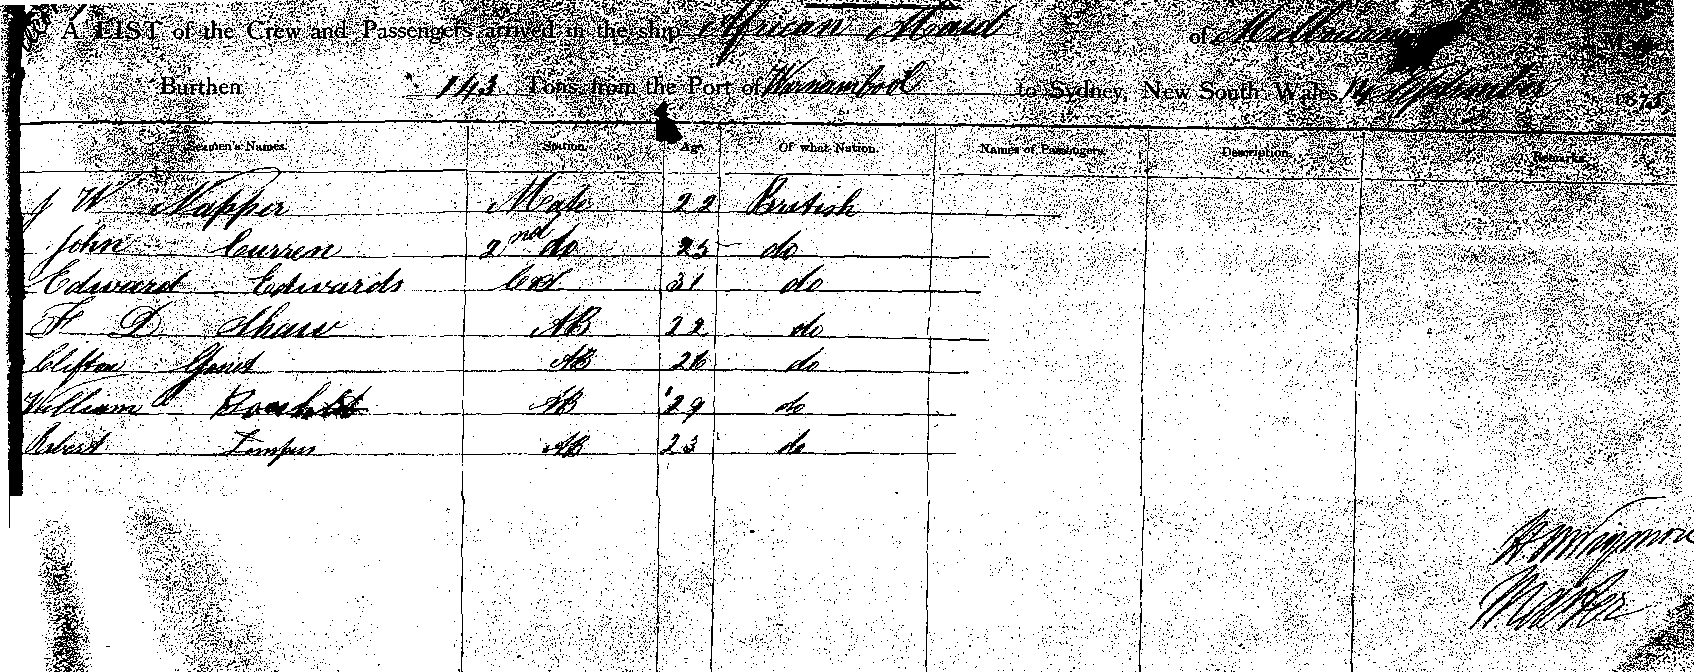 A LIST of the Crew and Passengers arrived in the ship African Maid of Melbourne
Burthen 143 Tons, from the Port of Warnambool to Sydney, New South Wales, 14 September 1875
Seamen's Names. Station. Age. Of what Nation. Names of Passengers. Description. Remarks.
J W Napper Mate 22 British
John Curren 2nd do 25 do
Edward Edwards 31 do
F D Shaw AB 22 do
Clifton AB 26 do
William AB 29 do
Robert AB 23 do
Master